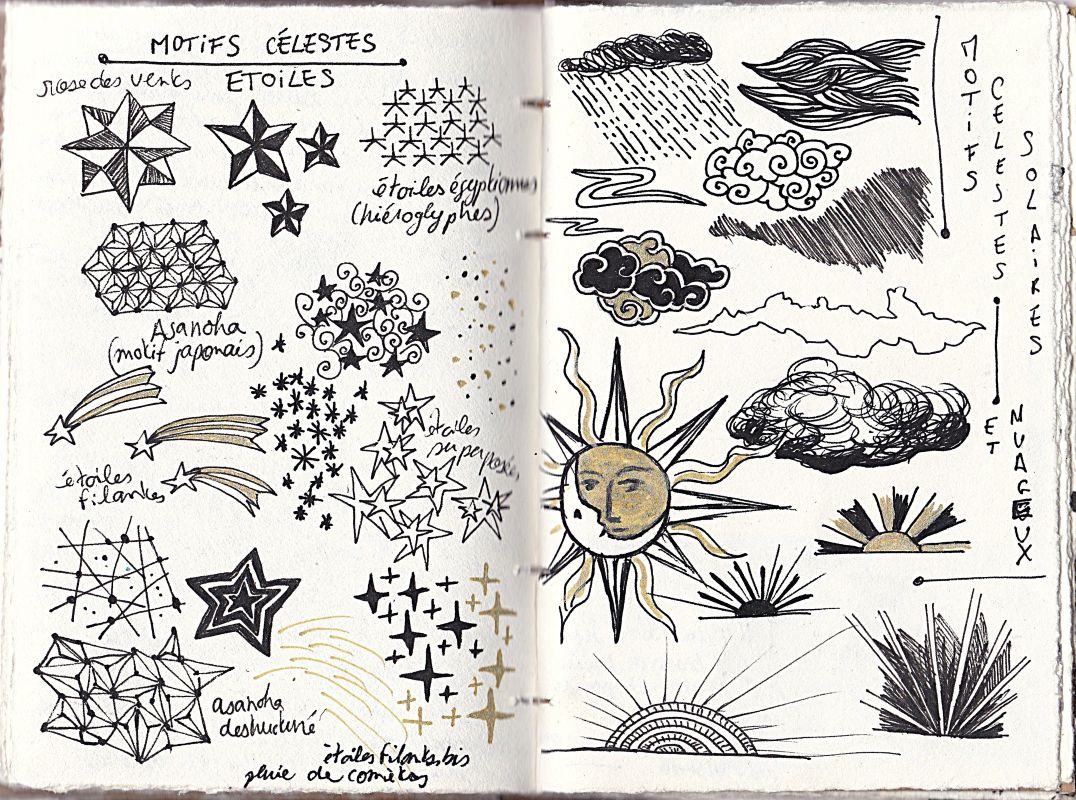 MOTIFS CÉLESTES
ETOILES
rose des vents
étoiles égyptiennes
(hiéroglyphes)
Asanoha
(motif japonais)
étoiles
superposées
étoiles
filantes
asanoha
destructuré
étoiles filantes bis
pluie de comètes
MOTIFS
CELESTES
SOLAIRES
ET
NUAGEUX